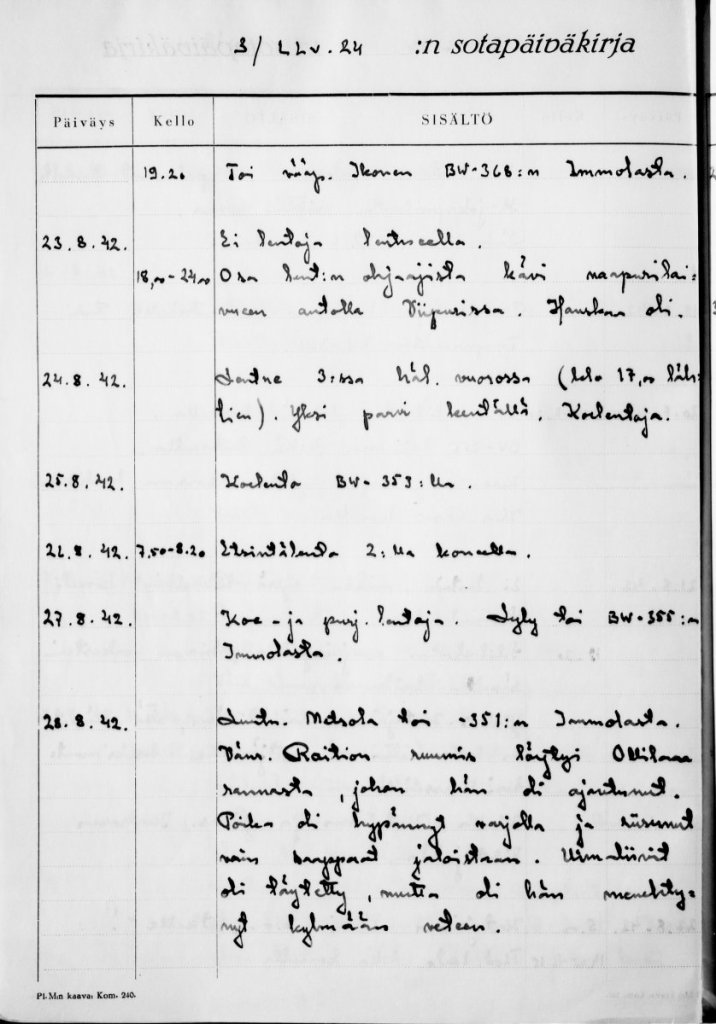 3/ LLv. 24 :n sotapäiväkirja
Päiväys Kello SISÄLTÖ
19.20 Toi vääp. Ikonen BW-368:n Immolasta.
23.8.42. Ei lentoja lentueella.
18,00-24,00 Osa lent:n ohjaajista kävi naapurilai=
vueen autolla Viipurissa. Hauskaa oli.
24.8.42. Lentue 3:ssa häl. vuorossa (klo 17,00 läh=
tien). Yksi parvi kentällä. Koelentoja.
25.8.42. Koelento BW-353:lla.
26.8.42. 7,50-8.20 Etsintälento 2:lla koneella.
27.8.42. Koe- ja purj. lentoja. Lyly toi BW-355:n
Immolasta.
28.8.42. Luutn. Metsola toi -351:n Immolasta.
Vänr. Raition ruumis löytyi
rannasta, johon hän oli ajautunut.
Poika oli hypännyt varjolla ja riisunut
vain saappaat jaloistaan. Uimaliivit
oli täytetty, mutta oli hän menehty=
nyt kylmään veteen.
Pl-M:n kaava: Kom. 240.